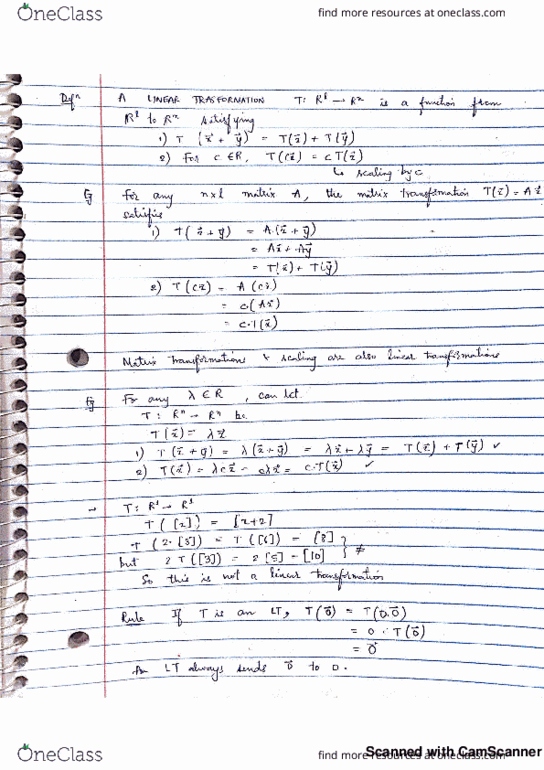 OneClass
find more resources at oneclass.com
Defn A LINEAR TRASFORNATION T: Rl → Rn is a function from
Rl to Rn satisfying
1) T (x⃗ + y⃗) = T(x⃗) + T(y⃗)
2) For c ∈ R, T(cx⃗) = c T(x⃗)
↳ scaling by c
Eg For any nxl matrix A, the matrix transformation T(x⃗) = Ax⃗
satisfies
1) T(x⃗ + y⃗) = A(x⃗ + y⃗)
= Ax⃗ + Ay⃗
= T(x⃗) + T(y⃗)
2) T(cx⃗) = A(cx⃗)
= c.(Ax⃗)
= c.T(x⃗)
Matrix transformation & scaling are also linear transformations
Eg For any λ ∈ R, can let
T: Rn → Rn be
T(x⃗) = λx⃗
1) T(x⃗ + y⃗) = λ(x⃗ + y⃗) = λx⃗ + λy⃗ = T(x⃗) + T(y⃗) ✓
2) T(x⃗) = λcx⃗ = cλx⃗ = c.T(x⃗) ✓
→ T: R1 → R1
T([x]) = [x+2]
T(2.[3]) = T([6]) = [8]
but 2T([3]) = 2[5] = [10] } ≠
So this is not a linear transformation
Rule If T is an LT, T(0⃗) = T(0.0⃗)
= 0 . T(0⃗)
= 0⃗
An LT always sends 0⃗ to 0.
OneClass
find more resources at oneclass.com
Scanned with CamScanner